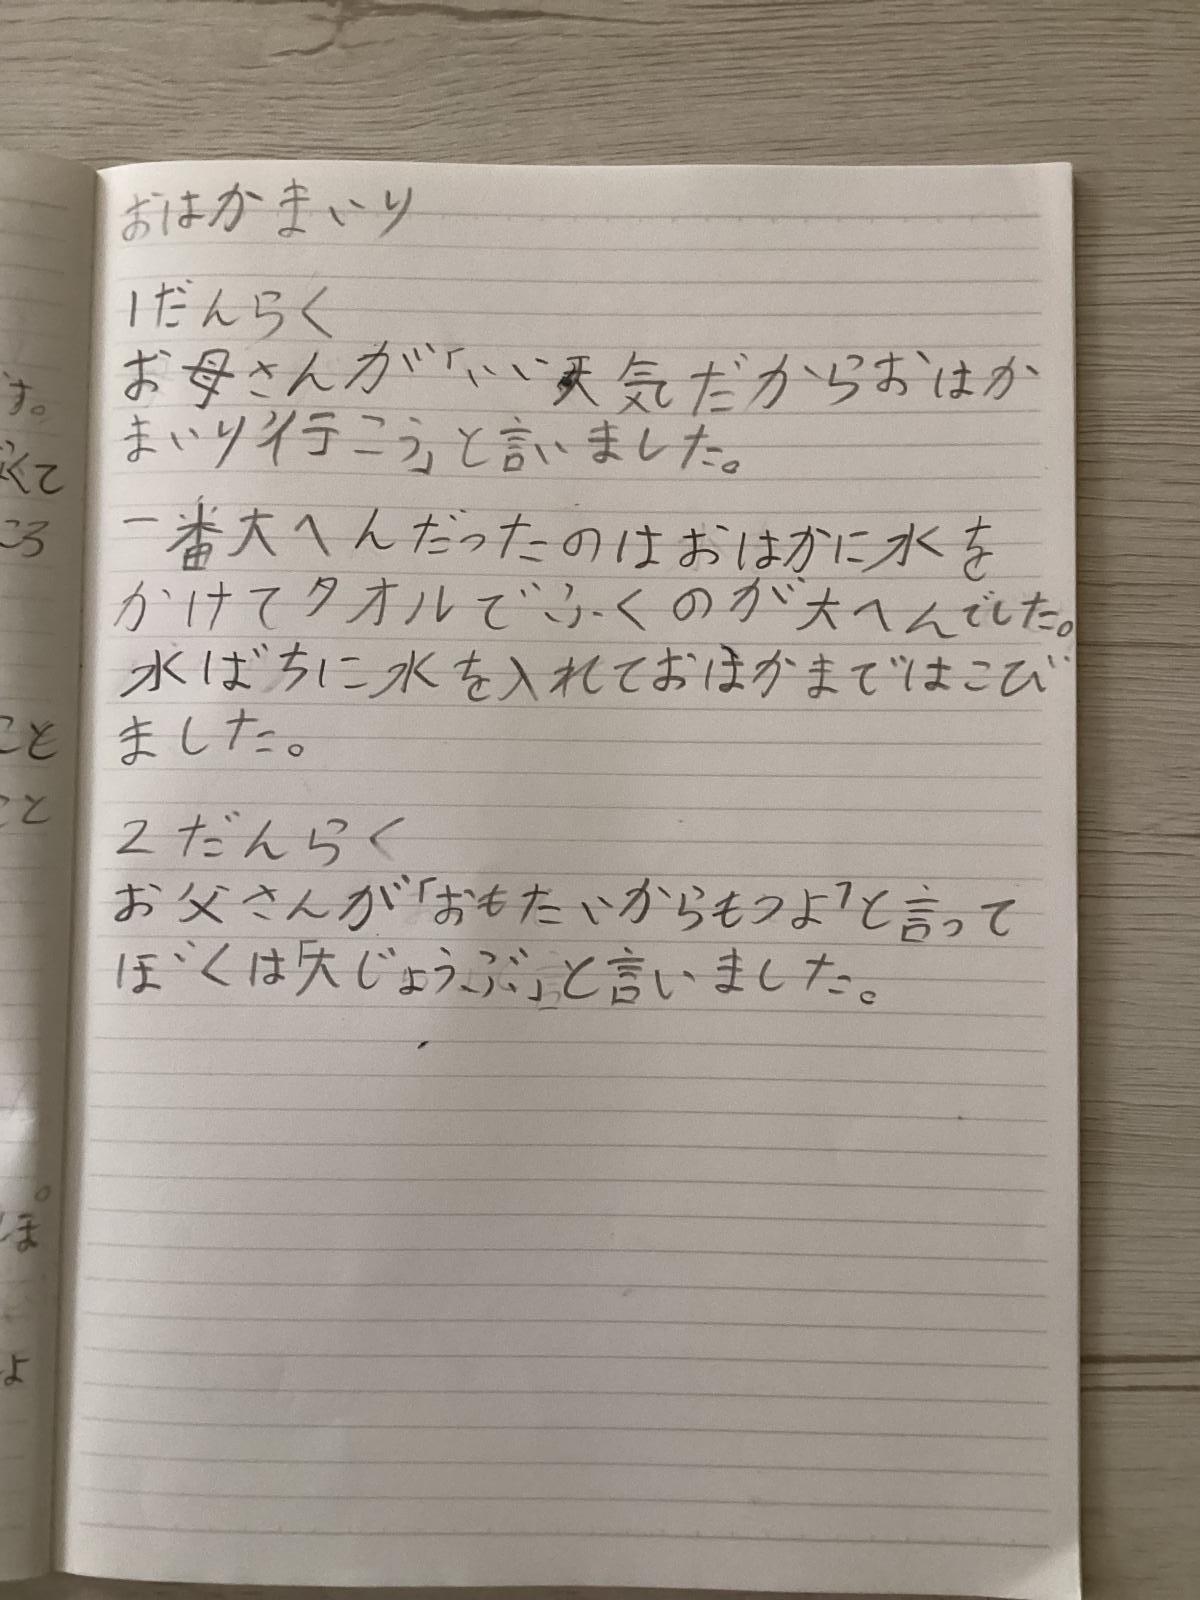 す。
くて
ころ
こと
こと
。
ほ
よ
おはかまいり
1だんらく
お母さんが「いい天気だからおはか
まいり行こう」と言いました。
一番大へんだったのはおはかに水を
かけてタオルでふくのが大へんでした。
水ばちに水を入れておはかまではこび
ました。
2だんらく
お父さんが「おもたいからもつよ」と言って
ぼくは「大じょうぶ」と言いました。